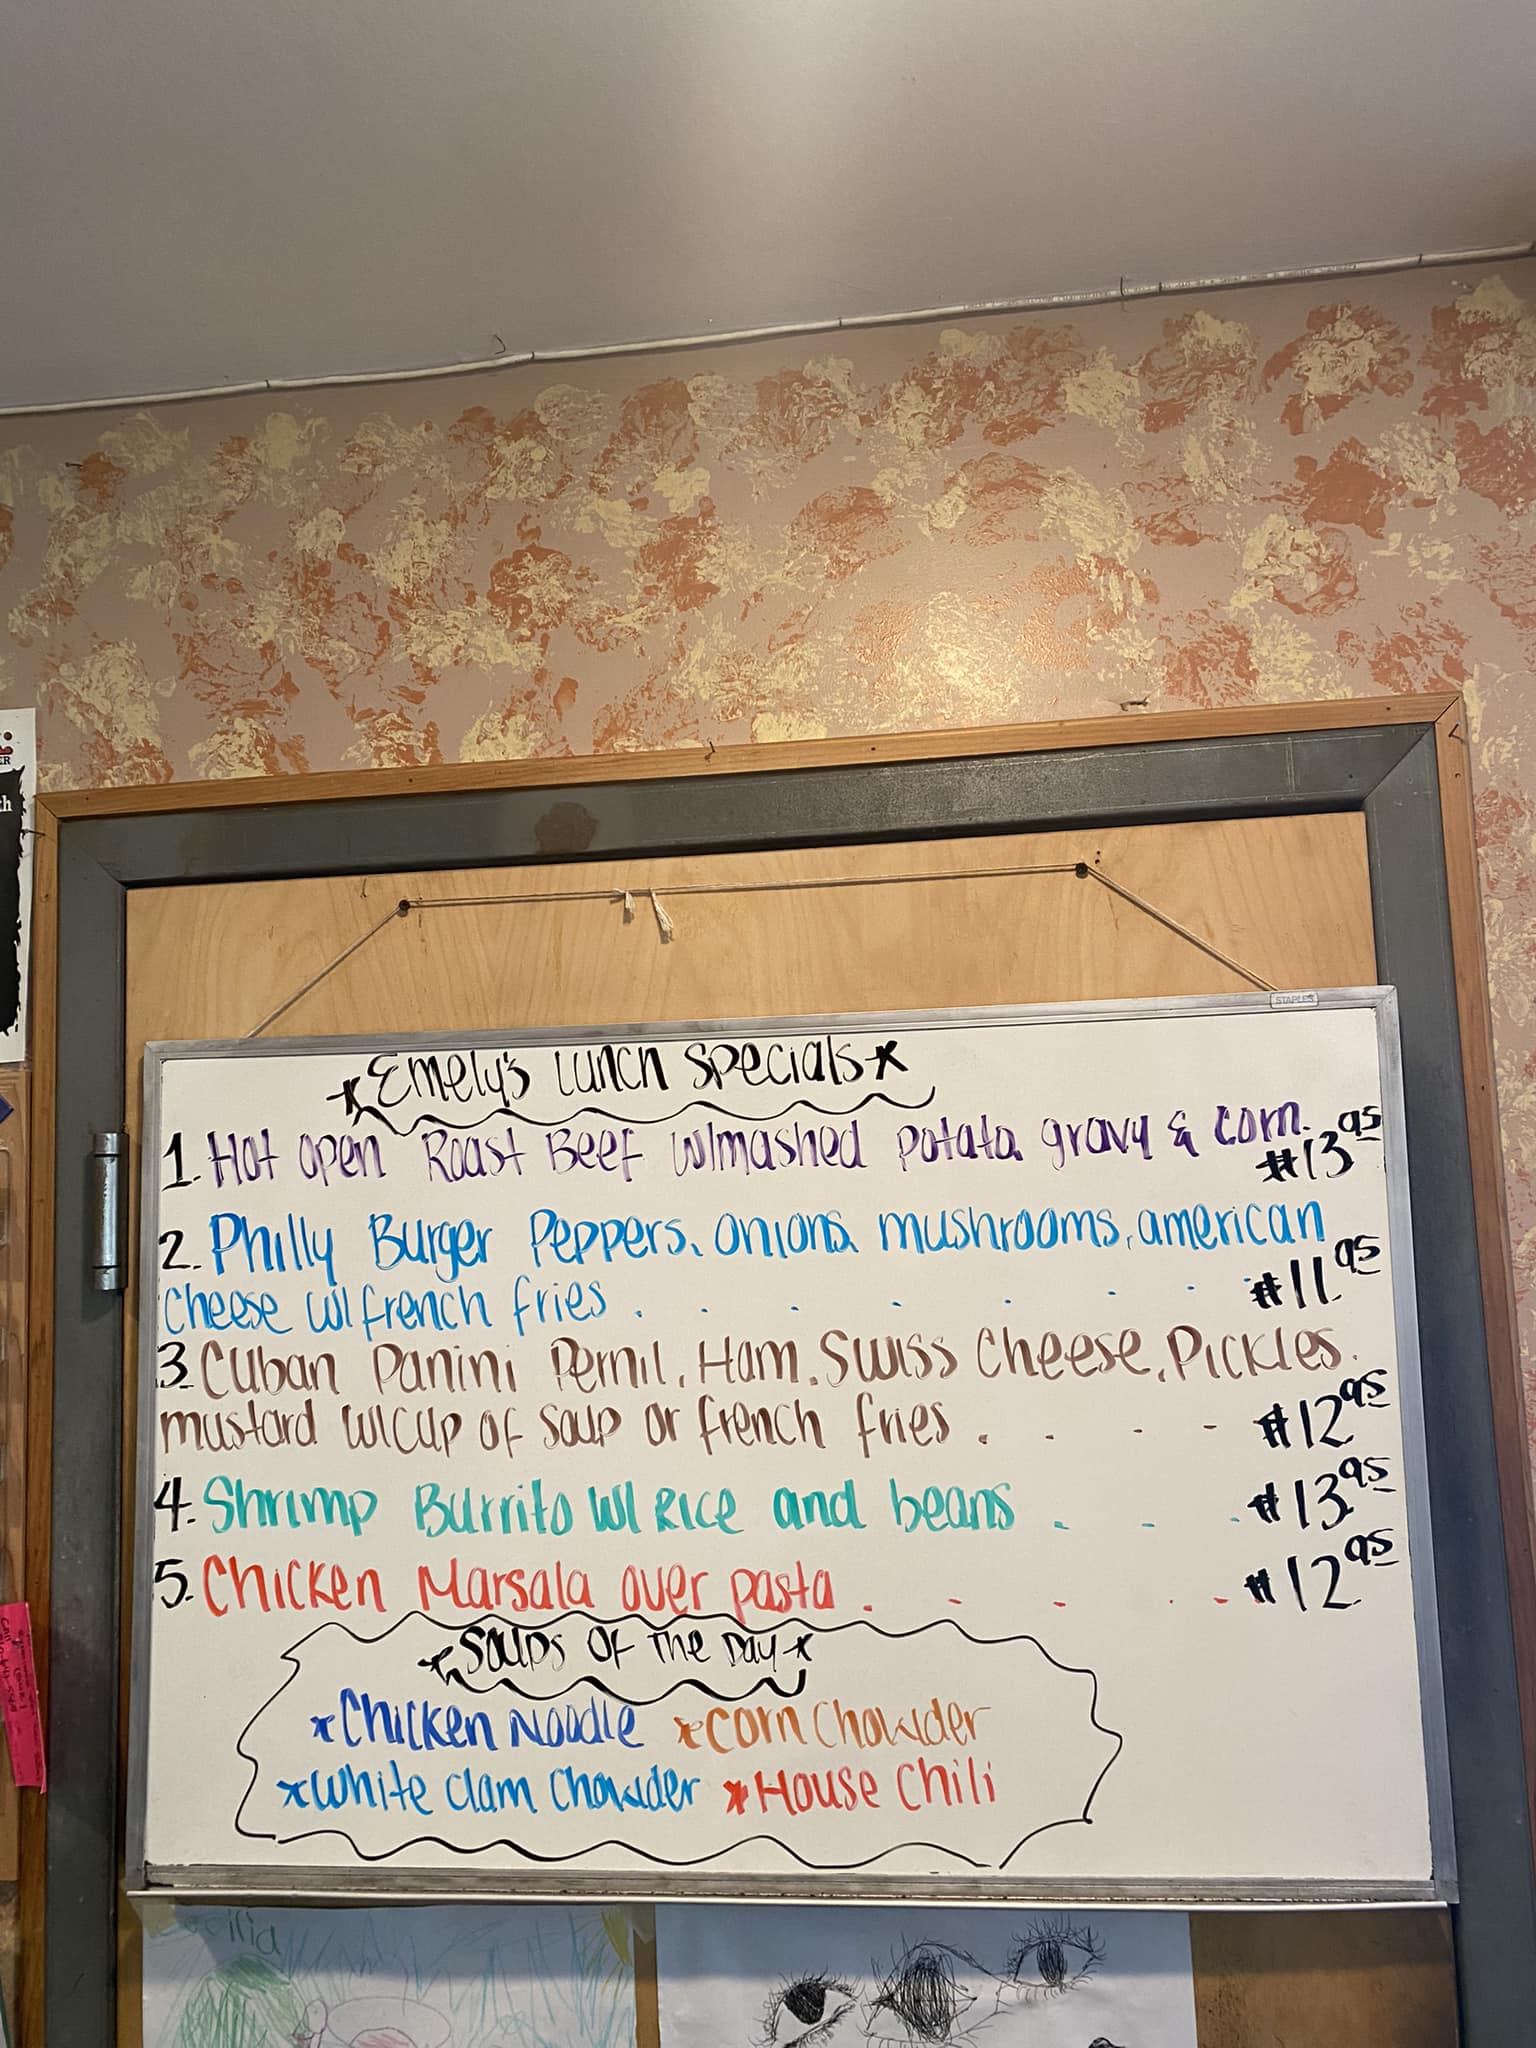 STAPLES
*Emely's Lunch Specials*
1. Hot open Roast Beef w/mashed potato, gravy & corn.
$13.95
2. Philly Burger Peppers, onions, mushrooms, american
cheese w/ french fries . . . . . . . $11.95
3. Cuban Panini Pernil, Ham, Swiss Cheese, Pickles.
mustard w/cup of soup or french fries . . . - $12.95
4. Shrimp Burrito w/ Rice and beans . . . . $13.95
5. Chicken Marsala over pasta . . . . . $12.95
*Soups Of The Day*
*Chicken Noodle *Corn Chowder
*White Clam Chowder *House Chili
Cecilia